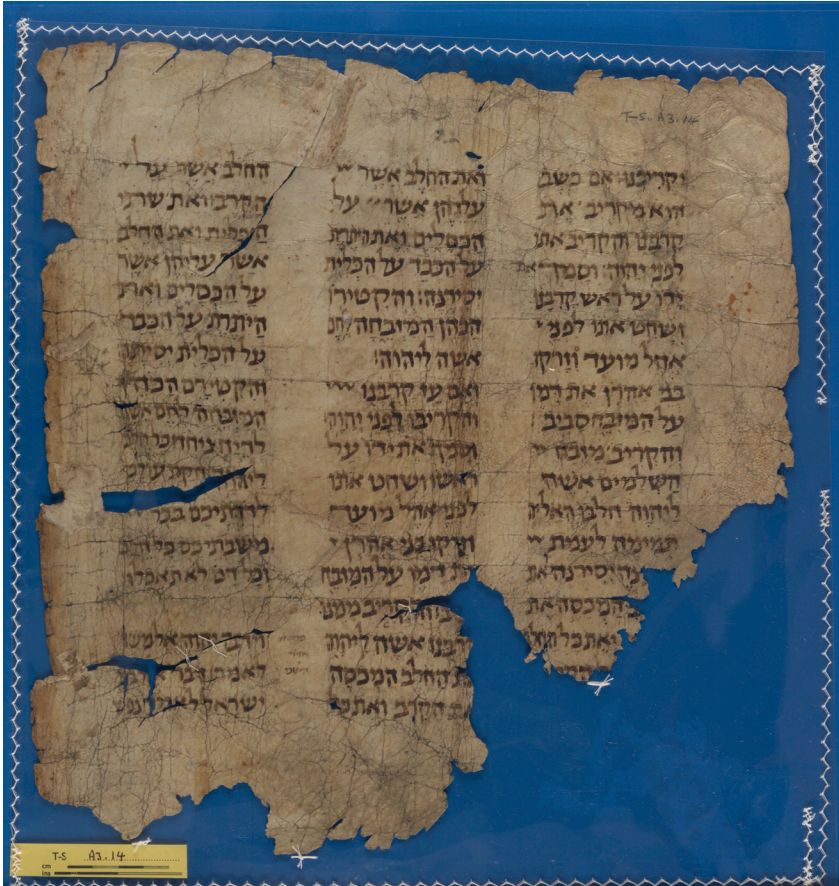 T-S. A3.14
יקריבנו: אם כשב
הוא מקריב את
קרבנו והקריב אתו
לפני יהוה: וסמך את
ידו על ראש קרבנו
ושחט אתו לפני
אהל מועד וזרקו
בני אהרן את דמו
על המזבח סביב
והקריב מזבח
השלמים אשה
ליהוה חלבו האליה
תמימה לעמת
יסירנה ואת
המכסה את
ואת כל
ואת החלב אשר
עלהן אשר על
הכסלים ואת היתרת
על הכבד על הכלית
יסירנה: והקטירו
הכהן המזבחה לחם
אשה ליהוה:
ואם עז קרבנו
והקריבו לפני יהוה
וסמך את ידו על
ראשו ושחט אתו
לפני אהל מועד
וזרקו בני אהרן
את דמו על המזבח
והקריב ממנו
קרבנו אשה ליהוה
את החלב המכסה
את הקרב ואת כל
החלב אשר על
הקרב: ואת שתי
הכלית ואת החלב
אשר עליהן אשר
על הכסלים ואת
היתרת על הכבד
על הכלית יסירנה
והקטירם הכהן
המזבחה לחם אשה
לריח ניחח כל חלב
חקת עולם
לדרתיכם בכל
משבתיכם כל חלב
וכל דם לא תאכלו
וידבר יהוה אל משה
לאמר: דבר אל
ישראל לאמר נפש
T-S A3.14
cm
ins